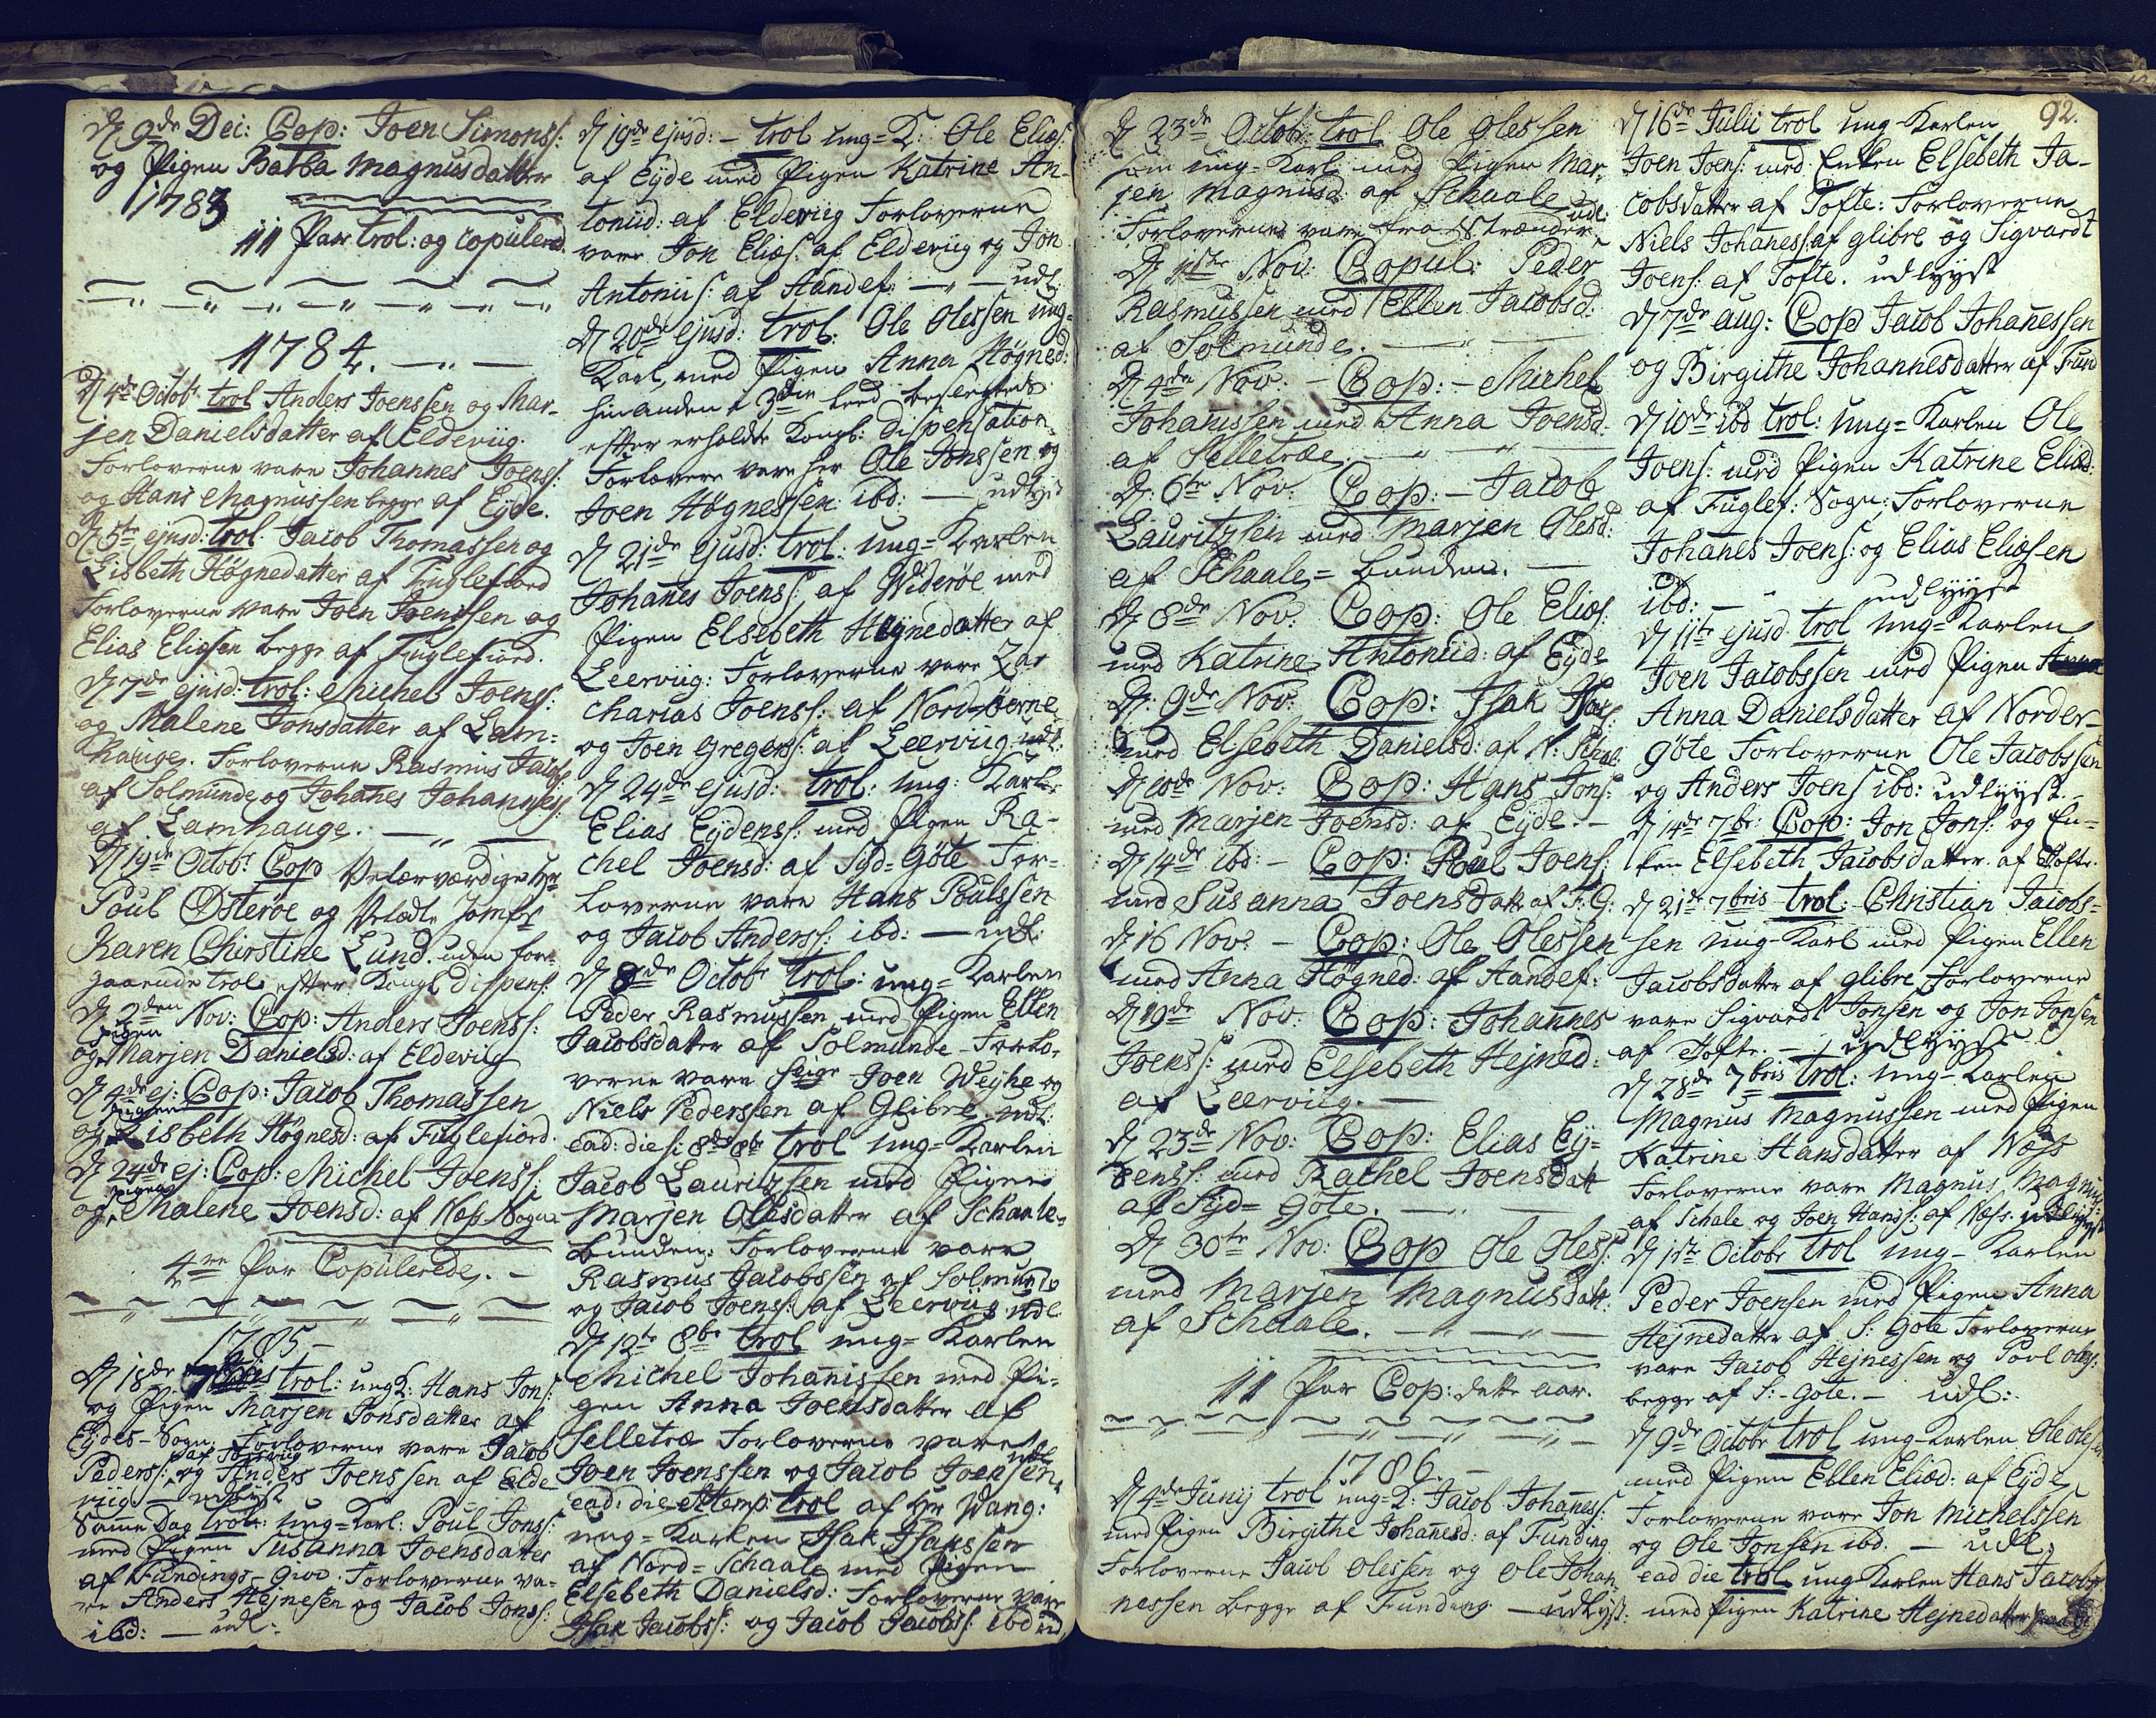 D. 9de Dec: Cop: Joen Simonss:
og Pigen Barba Magnusdatter
1783
11 Par trol: og copulered.
1784.
D. 4de Octobr trol Anders Joenssen og Mar-
jen Danielsdatter af Eldeviig.
Forloverne vare Johannes Joenss:
og Hans Magnussen begge af Eyde.
D. 5te ejusd: trol: Jacob Thomassen og
Lisbeth Høgnedatter af Fuglefiord
Forloverne vare Joen Joenssen og
Elias Eliassen begge af Fuglefiord.
D. 7de ejusd: trol: Michel Joenss:
og Malene Jonsdatter af Lam-
hauge. Forloverne Rasmus Jacobs:
af Solmunde og Johannes Johanness:
af Lamhauge.
D. 19de Octobr Cop Velærværdige Hr
Poul Østerøe og Velædle Jomfr
Karen Chirstine Lund. uden fore-
gaaende trol: efter Kongl dispens:
D. 2den Nov: Cop: Anders Joenss:
og Pigen Marjen Danielsd: af Eldeviig
D. 4de ej: Cop: Jacob Thomassen
og Pigen Lisbeth Høgnesd: af Fuglefiord.
D. 24de ej: Cop: Michel Joenss:
og Pigen Malene Joensd: af Næs Sogn
4re Par Copulerede.
1785
D. 18de 7bris trol: ung K: Hans Jons:
og Pigen Marjen Jonsdatter af
Eydes-Sogn: Forloverne vare Jacob
Pederss: og Anders Joenssen af Elde
viig udlyst
Samme Dag trol: ung-Karl: Poul Jonss:
med Pigen Susanna Joensdatter
af Fundings-Giov. Forloverne va-
re Anders Hejnesen og Jacob Jonss:
ibd: — udl:
D. 19de ejusd: - trol ung-K: Ole Elias:
af Eyde med Pigen Katrine An-
toniid: af Eldeviig Forloverne
vare Jon Elias: af Eldeviig og Jon
Antonius: af Handef: — udl:
D. 20de ejusd: trol: Ole Olessen ung-
Karl, med Pigen Anna Høgned:
hinanden i 3die leed beslegtede
efter erholdte Kongl: dispensation.
Forlovere vare her Ole Jonssen og
Joen Høgnessen ibd: — udlyst
D. 21de ejusd: trol: ung-Karlen
Johanes Joenss: af Widerøe med
Pigen Elsebeth Hejnedatter af
Leerviig: Forloverne vare Za-
charias Joenss: af Nord-øerne
og Joen Gregerss: af Leerviig udl:
D. 24de ejusd: trol: ung: Karle
Elias Eydenss: med Pigen Ra-
chel Joensd: af Syd-Gøte For-
loverne vare Hans Poulssen
og Jacob Anderss: ibd: — udl:
D. 8de Octobr trol: ung-Karlen
Peder Rasmussen med Pigen Ellen
Jacobsdatter af Solmunde-Forlo-
verne vare Joen Wejhe og
Niels Pederssen af Glibre. udl:
ead: die s: 8de 8br trol ung-Karlen
Jacob Lauritzssen med Pigen
Marjen Olesdatter af Schaale-
bunden: Forloverne vare
Rasmus Jacobssen af Solmunde
og Jacob Joenss: af Leerviig udl:
D. 12te 8br trol ung-Karlen
Michel Johanissen med Pi-
gen Anna Joensdatter af
Selletræ Forloverne vare
Joen Joenssen og Jacob Joenssen udl
ead: die & temp: trol af Hr Wang:
ung-Karlen Isak Isakssen
af Nord-Schaale med Pigen
Elsebeth Danielsd: Forloverne vare
Isak Jacobss: og Jacob Jacobss: ibd ud
D. 23de Octobr: trol Ole Olessen
som ung-Karl med Pigen Mar-
jen Magnusd: af Schaale udl:
Forloverne vare fra Strænder.
D. 1ste Nov: Copul: Peder
Rasmussen med Ellen Jacobsd:
af Solmunde.
D. 4de Nov: - Cop: - Michel
Johanissen med Anna Joensd:
af Selletræe.
D. 6te Nov: Cop: - Jacob
Lauritzsen med Marjen Olesd:
af Schaale-bunden.
D. 8de Nov: Cop: Ole Elias:
med Katrine Antoniid: af Eyde
D. 9de Nov: Cop: Isak Isaks:
med Elsebeth Danielsd: af N: Schaal:
D. 10de Nov: Cop: Hans Jons:
med Marjen Joensd: af Eyde.
D. 14de ibd: - Cop: Poul Joens:
med Susanna Joensdatt: af F. G:
D. 16 Nov: - Cop: Ole Olessen
med Anna Høgned: af Handef:
D. 19de Nov: Cop: Johannes
Joenss: med Elsebeth Hejned:
af Leerviig.
D. 23de Nov: Cop: Elias Ey-
denss: med Rachel Joensdatt
af Syd-Gøte.
D. 30te Nov: Cop Ole Oless:
med Marjen Magnusdatt:
af Schaale.
11 Par Cop: dette aar.
1786.
D. 4de Junij trol ung-K: Jacob Johaness:
med Pigen Birgithe Johanesd: af Funding
Forloverne Jacob Olessen og Ole Johan-
nessen begge af Funding — udlyst:
92.
D. 16de Julii trol ung-Karlen
Joen Joens: med Enken Elsebeth Ja-
cobsdatter af Tofte: Forloverne
Niels Johaness: af glibre og Sigvardt
Joens: af Tofte. udlyst
D. 7de aug: Cop Jacob Johanessen
og Birgithe Johannesdatter af Fund
D. 10de ibd trol: ung-Karlen Ole
Joens: med Pigen Katrine Eliæd:
af Fuglef: Sogn: Forloverne
Johanes Joens: og Elias Eliassen
ibd: — udlyyst
D. 11te ejusd trol ung-Karlen
Joen Jacobssen med Pigen Anna
Anna Danielsdatter af Norder-
gøte Forloverne Ole Jacobssen
og Anders Joens ibd: udlyyst.
D. 14de 7br: Cop: Jon Jons: og En-
ken Elsebeth Jacobsdatter af Tofte.
D. 21de 7bris trol: Christian Jacobs-
sen ung-Karl med Pigen Ellen
Jacobsdatter af glibre Forloverne
vare Sigvardt Jonsen og Jon Jonsen
af Tofte. - udlyyst
D. 28de 7bris trol: ung-Karlen
Magnus Magnussen med Pigen
Katrine Hansdatter af Næs
Forloverne vare Magnus Magnus:
af Schale og Joen Hanss: af Næs. udlyyst
D. 1ste Octobr trol ung-Karlen
Peder Joensen med Pigen Anna
Hejnedatter af S: Gøte Forloverne
vare Jacob Hejnessen og Povl Oles:
begge af S:-Gøte. - udl:
D. 9de Octobr trol ung-Karlen Ole Olessen
med Pigen Ellen Eliæd: af Eyde
Forloverne vare Jon Michelssen
og Ole Jonsen ibd. — udl.
ead die trol ung Karlen Hans Jacobs:
med Pigen Katrine Hejnedatter